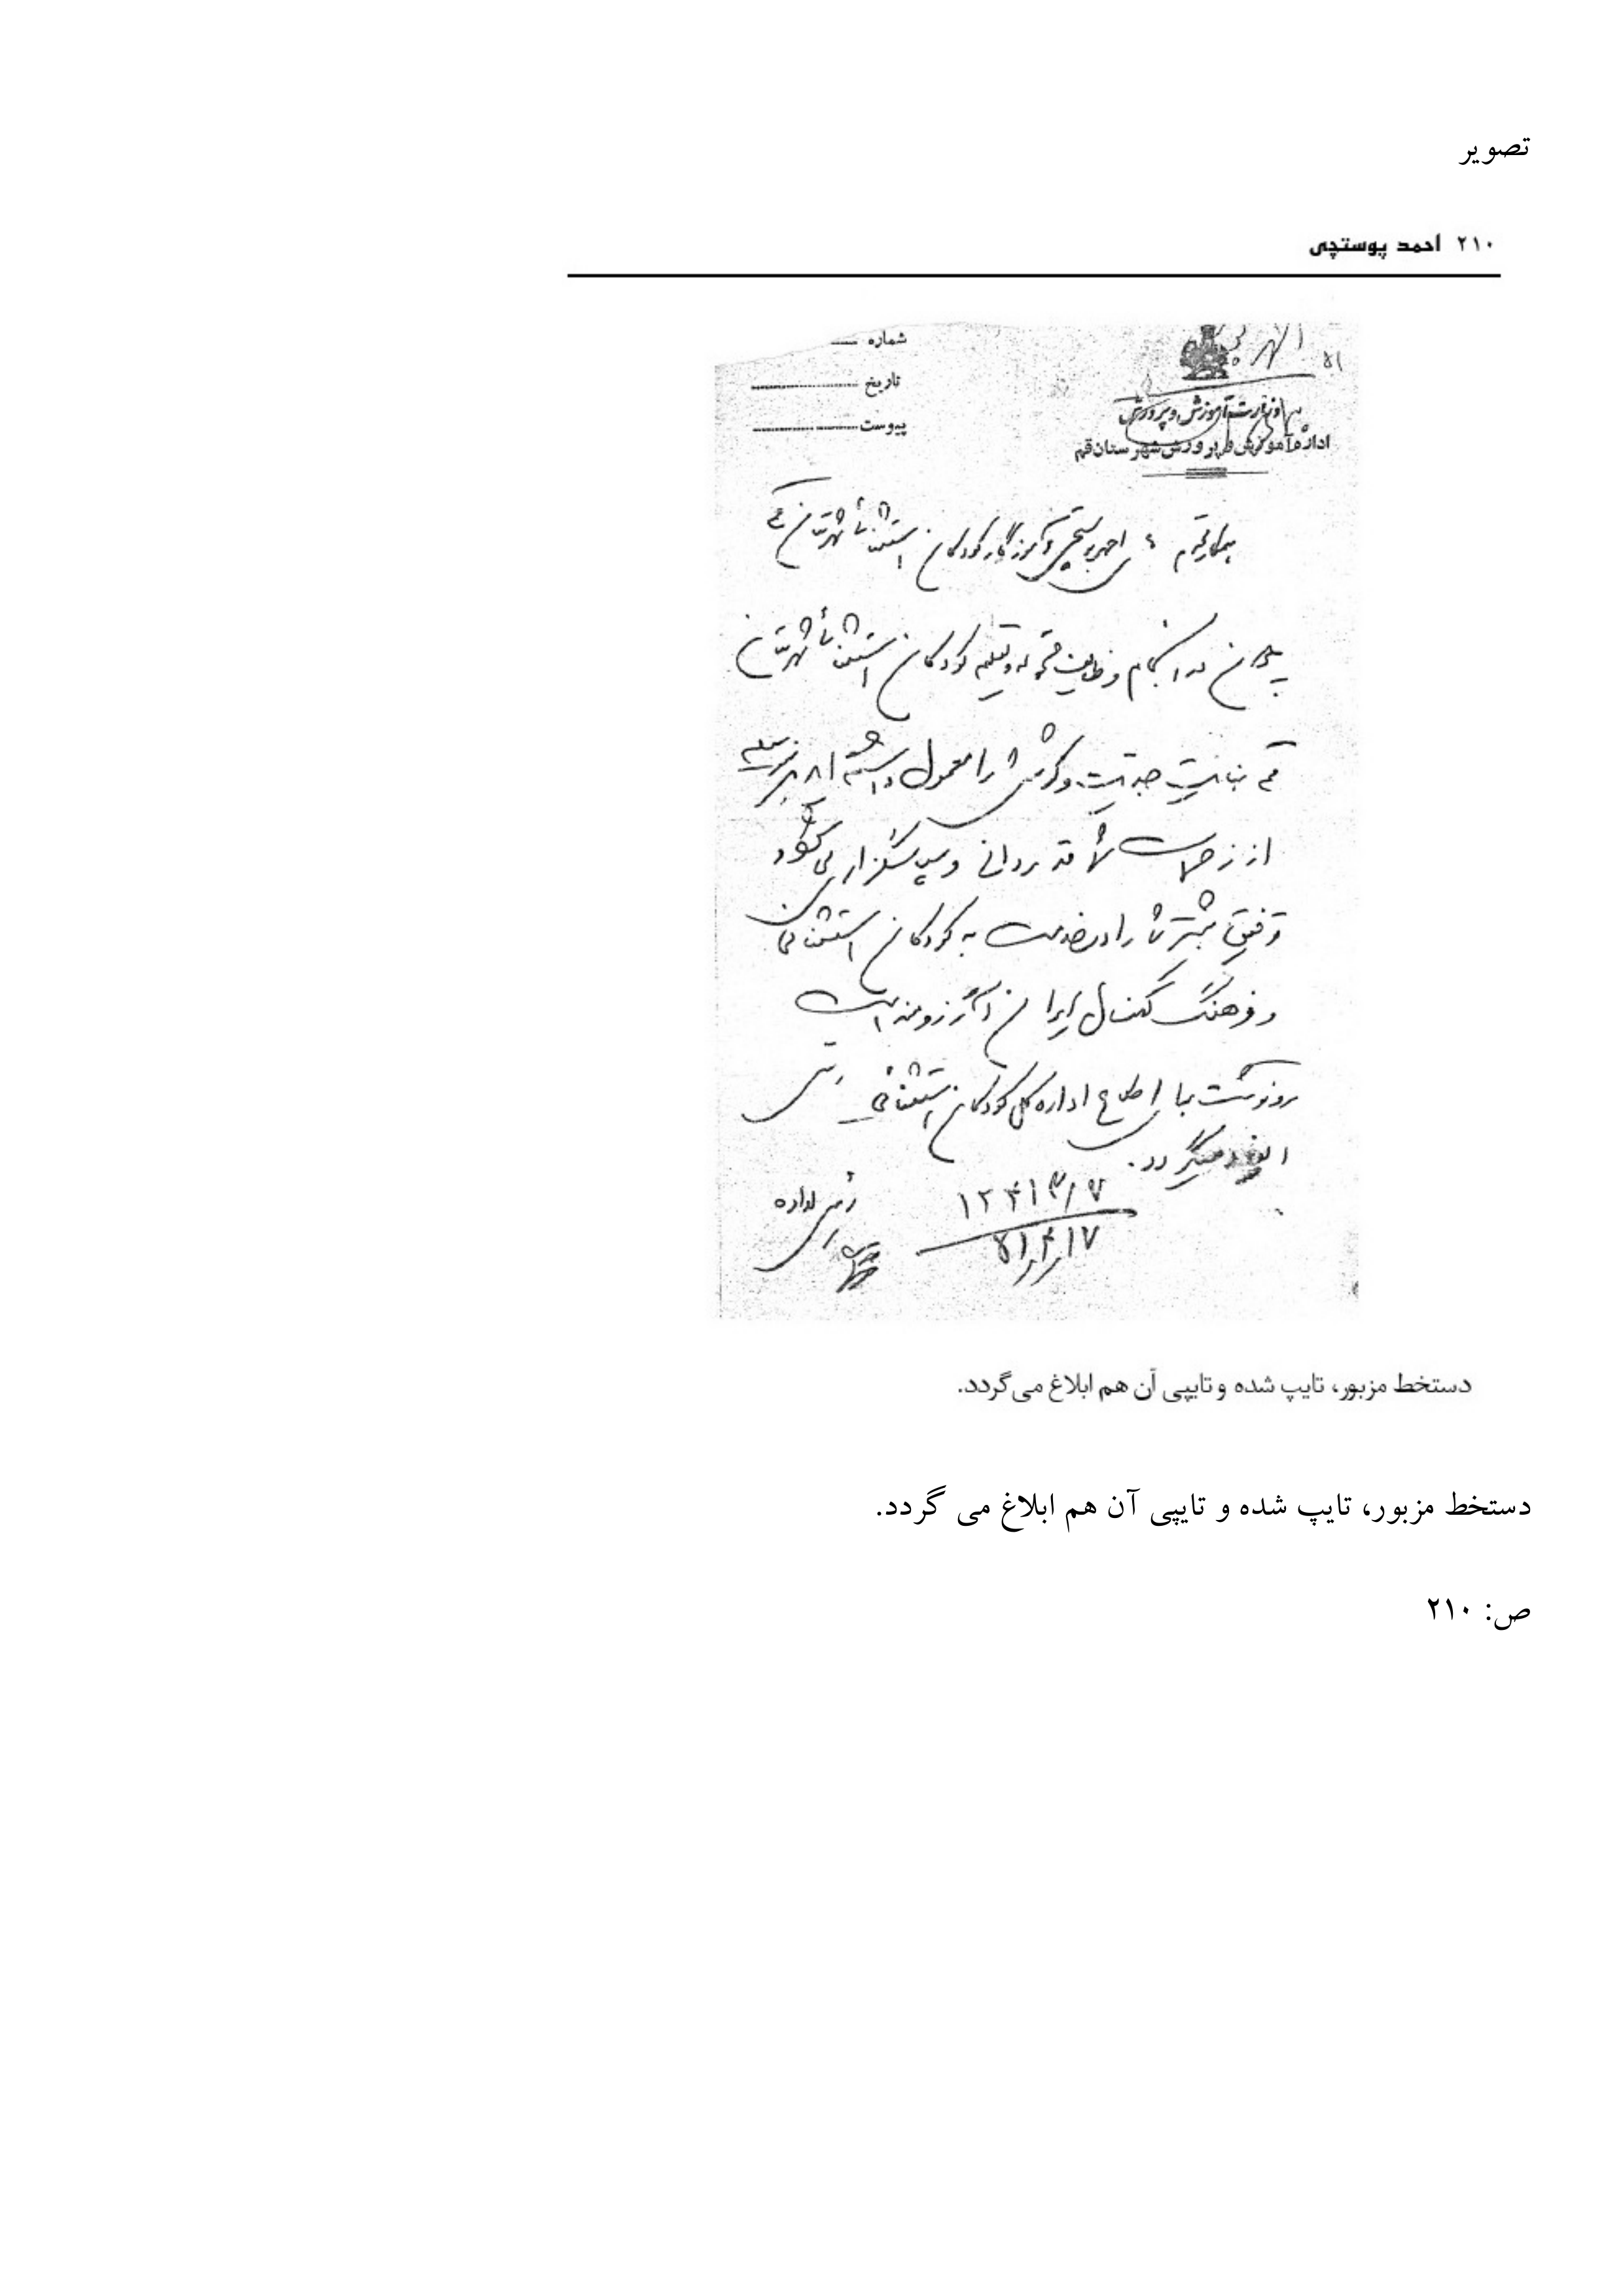 تصویر
۲۱۰ احمد پوستچی
شماره
تاریخ
پیوست
وزارت آموزش و پرورش
اداره آموزش و پرورش شهرستان قم
همکار محترم احمد پوستچی آموزگار کودکان استثنائی شهرستان قم
چون در انجام وظایف محوله و تعلیم کودکان استثنائی شهرستان
قم نهایت جدیت و کوشش را معمول داشته اید بدینوسیله
از زحمات شما قدردانی و سپاسگزاری میشود
توفیق بیشتر شما را در خدمت به کودکان استثنائی
و فرهنگ کهنسال ایران آرزومند است
رونوشت با اطلاع اداره کل کودکان استثنائی
میگردد.
رئیس اداره
دستخط مزبور، تایپ شده و تایپی آن هم ابلاغ می‌گردد.
دستخط مزبور، تایپ شده و تایپی آن هم ابلاغ می گردد.
ص: ۲۱۰